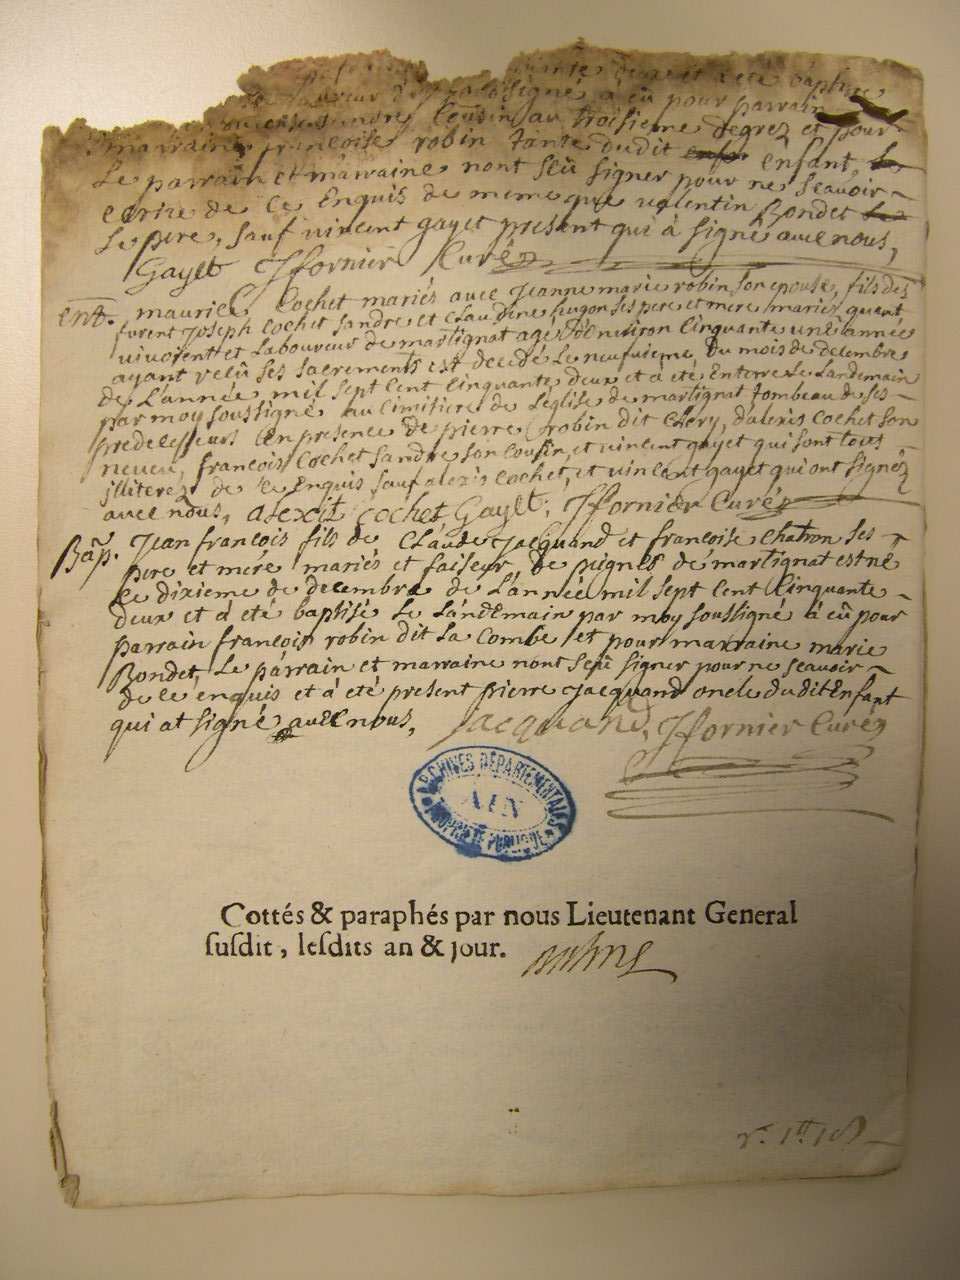 deux et a été baptisé
soussigné a eû pour parrain
sandre Cousin au troisieme degrez et pour
marraine francoise robin tante dudit enfant,
Le parrain et marraine nont seü signer pour ne scauoir
ecrire de ce Enquis de meme que valentin Bondet
Le pere, sauf vincent gayet present qui à signé auec nous,
Gayet Jfornier Curéz
Ent. maurice Cochet mariés auec Jeanne marie robin son epouse, fils des
furent Joseph Cochet sandre et Claudine hugon ses pere et mere mariez quant
viuoient et Laboureur de martignat agé d'enuiron Cinquante une année
ayant recû ses sacrements est decedé Le neufuieme du mois de decembre
de L'année mil sept Cent Cinquante deux et à été Enterré Le Landemain
par moy soussigné au Cimitiere de Leglise de martignat tombeau de ses
predecesseurs En presence de pierre robin dit Clery, d'alexis Cochet son
neueu, francois Cochet sandre son Cousin, et vincent gayet qui sont tous
illiterez de ce Enquis sauf alexis Cochet, et vincent gayet qui ont signéz
auec nous, alexit cochet, Gayet, Jfornier Curéz
Bap. Jean francois fils de Claude Jacquand et francoise Chatron ses
pere et mere mariés et faiseur de peignes de martignat est né
Le dixieme de decembre de L'année mil sept Cent Cinquante
deux et à été baptisé Le Landemain par moy soussigné à eû pour
parrain francois robin dit La Combe et pour marraine marie
Bondet, Le parrain et marraine nont seü signer pour ne scauoir
de ce enquis et à été present pierre Jacquand oncle dudit Enfant
qui at signé auec nous, jacquand, Jfornier Curéz
ARCHIVES DÉPARTEMENTALES
AIN
PROPRIÉTÉ PUBLIQUE
Cottés & paraphés par nous Lieutenant General
susdit, lesdits an & jour.